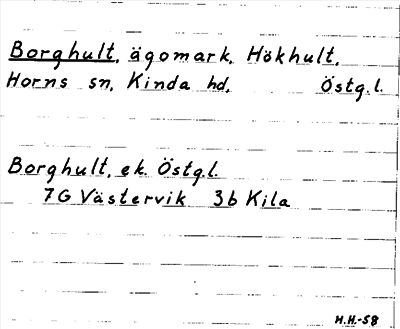 Borghult, ägomark, Hökhult,
Horns sn, Kinda hd, Östg.l.
Borghult, ek. Östgl.
7G Västervik 3b Kila
H.H.-58